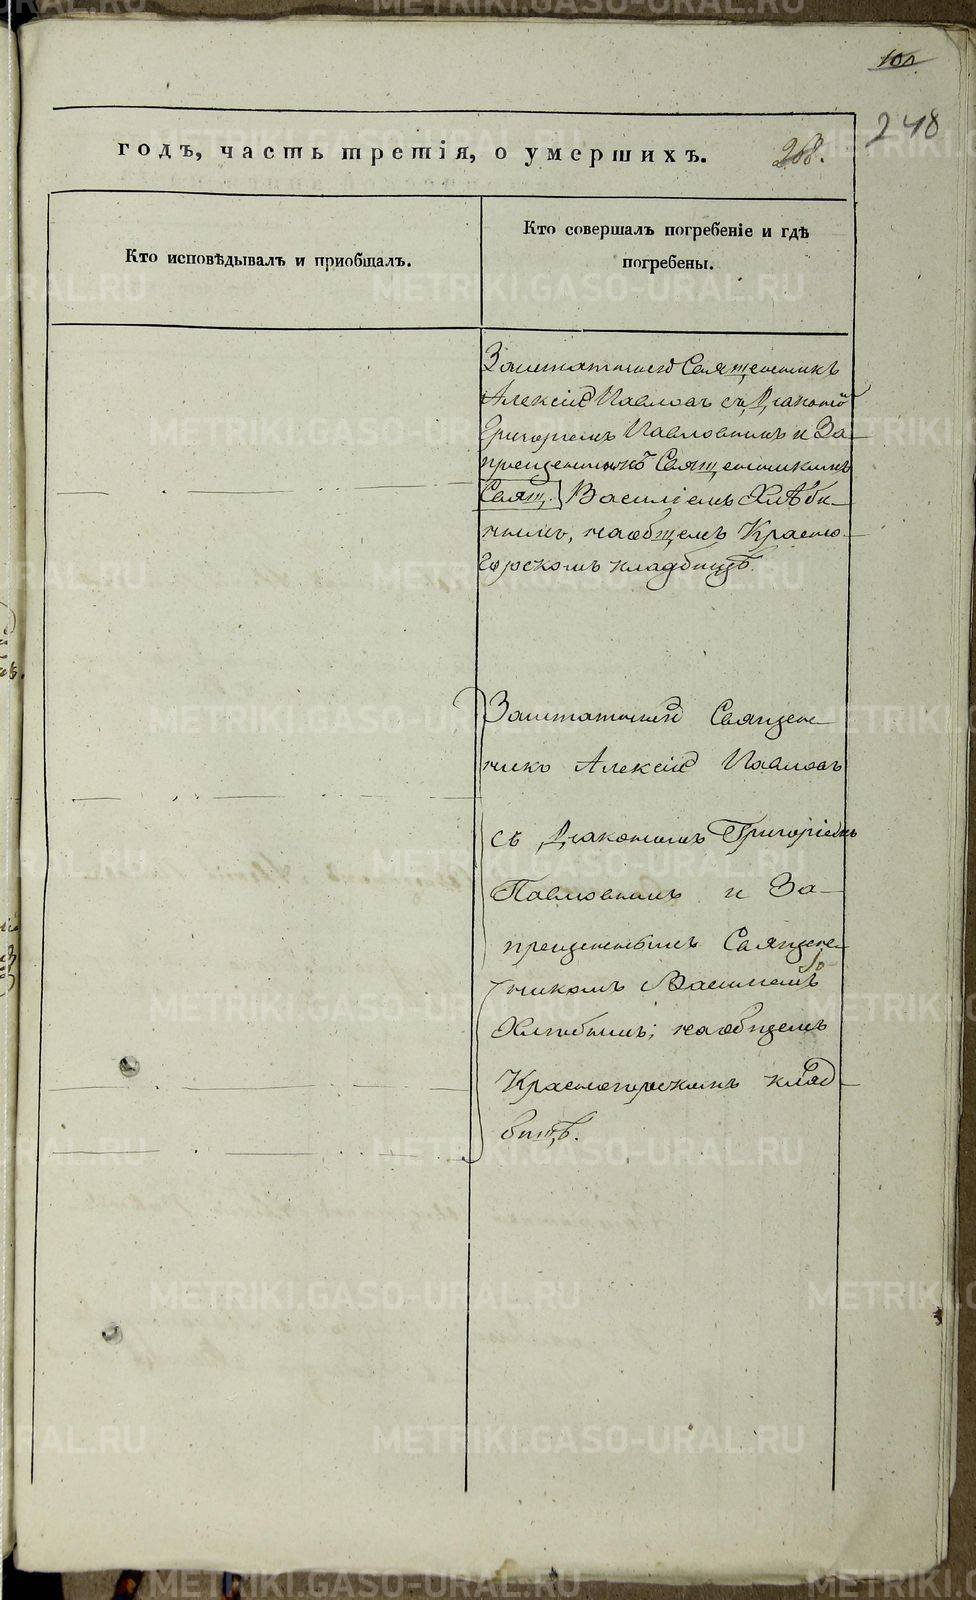 248
годъ, часть третія, о умершихъ. 208.
Кто исповѣдывалъ и приобщалъ.
Кто совершалъ погребеніе и гдѣ
погребены.
Заштатный Священникъ
Алексій Павловъ съ Діакономъ
Григоріемъ Павловымъ и За-
прещеннымъ Священникомъ
Свящ. Василіемъ Хлѣби-
нымъ, на общемъ Красно-
горскомъ кладбищѣ.
Заштатный Священ-
никъ Алексій Павловъ
съ Діакономъ Григоріемъ
Павловымъ и За-
прещеннымъ Священ-
никомъ Василіемъ
на общемъ
Красногорскомъ клад-
бищѣ.
METRIKI.GASO-URAL.RU